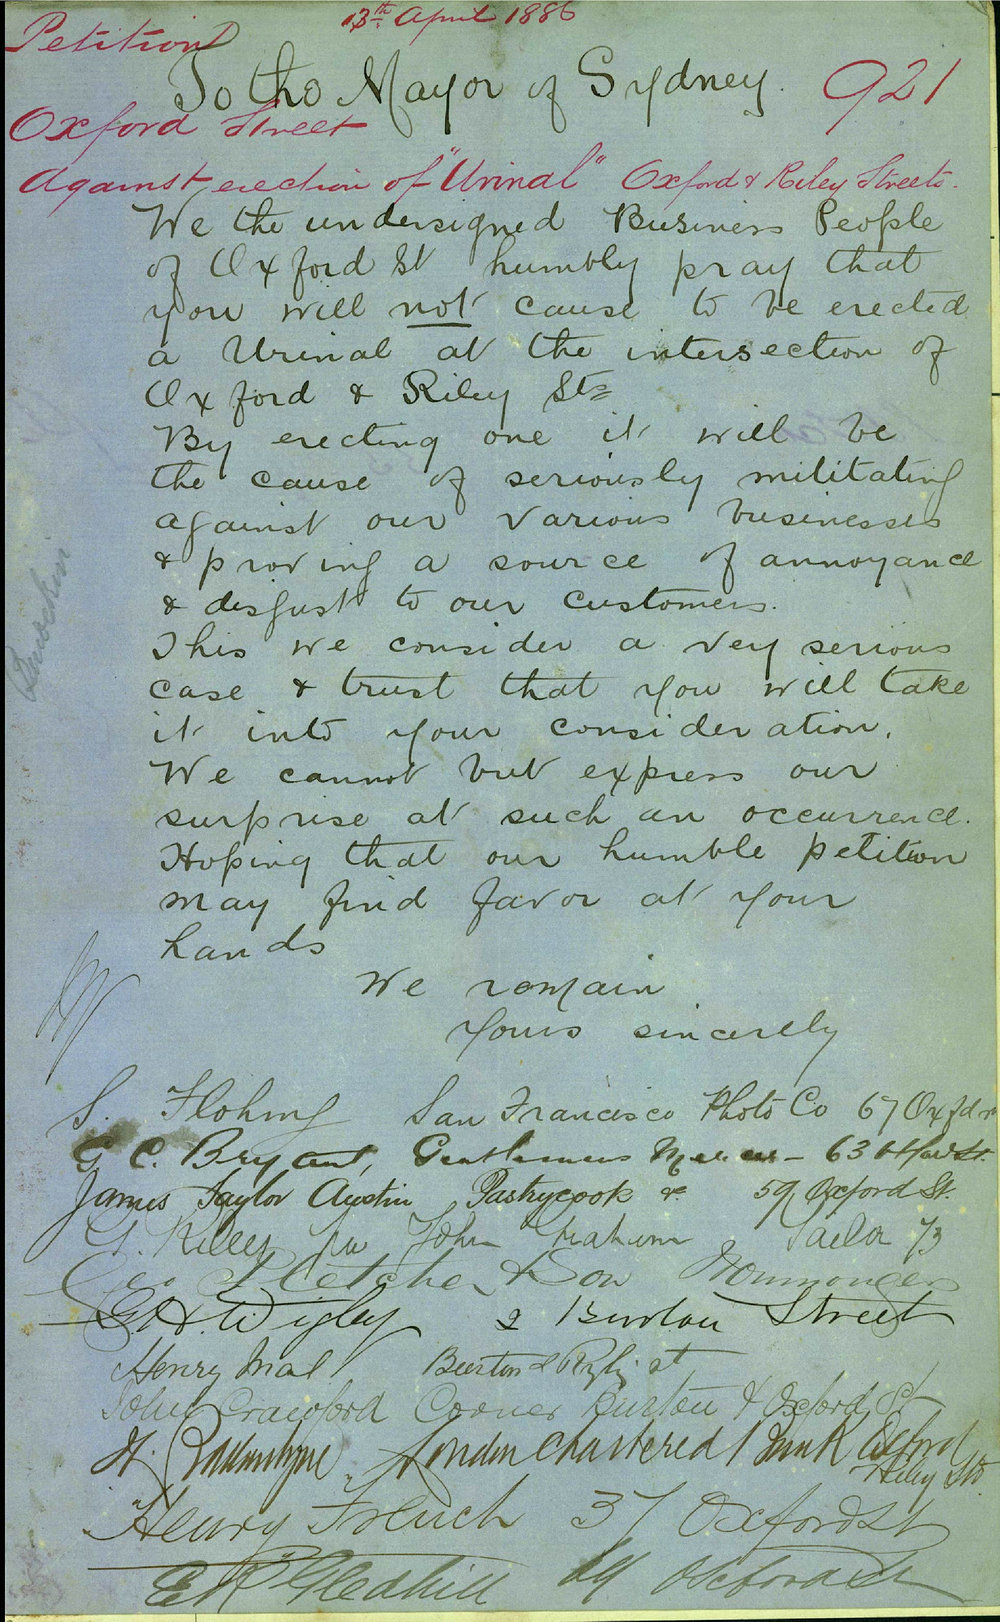 13th April 1886
Petition
To the Mayor of Sydney.
921
Oxford Street
Against erection of "Urinal" Oxford & Riley Streets.
We the undersigned Business People
of Oxford St humbly pray that
you will not cause to be erected
a Urinal at the intersection of
Oxford & Riley Sts
By erecting one it will be
the cause of seriously militating
against our various businesses
& proving a source of annoyance
& disgust to our customers.
This we consider a very serious
case & trust that you will take
it into your consideration.
We cannot but express our
surprise at such an occurrence.
Hoping that our humble petition
may find favor at your
hands
We remain
Yours sincerely
S. Flohm San Francisco Photo Co 67 Oxfd St
G C. Bryant, Gentlemens Mercer - 63 Oxford St.
James Taylor Austin Pastrycook &c 59 Oxford St.
Riley John Graham Tailor 73
Geo Fletcher & Son Ironmongers
G H. Wigley 2 Burton Street
Henry Burton & Riley st
John Crawford Corner Burton & Oxford St
H. Ballantyne. London Chartered Bank Oxford
& Riley Sts.
Henry French 37 Oxford St
E R Gledhill 19 Oxford St